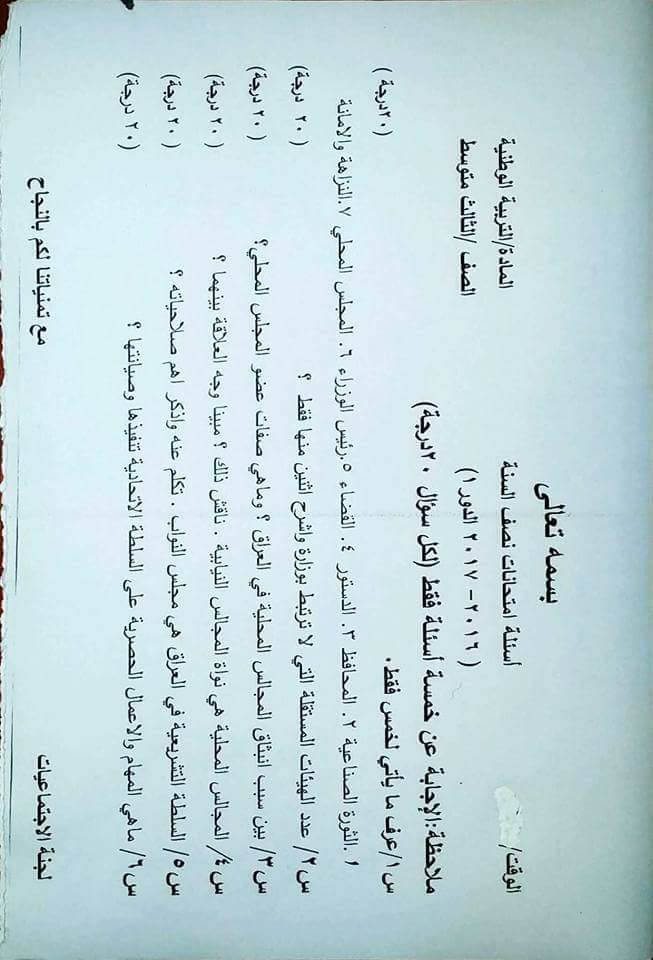 بسمه تعالى
المادة/التربية الوطنية أسئلة امتحانات نصف السنة الوقت/
الصف /الثالث متوسط ( ٢٠١٦ - ٢٠١٧ الدور ١)
ملاحظة:الإجابة عن خمسة أسئلة فقط (لكل سؤال ٢٠درجة)
س١/عرف ما يأتي لخمس فقط. (٢٠درجة )
١.الثورة الصناعية ٢. المحافظ ٣. الدستور ٤. القضاء ٥.رئيس الوزراء ٦. المجلس المحلي ٧.النزاهة والامانة
س٢/ عدد الهيئات المستقلة التي لا ترتبط بوزارة واشرح اثنين منها فقط ؟ (٢٠ درجة)
س٣/ بين سبب انبثاق المجالس المحلية في العراق ؟ وماهي صفات عضو المجلس المحلي؟ (٢٠ درجة)
س٤/ المجالس المحلية هي نواة المجالس النيابية . ناقش ذلك ؟ مبينا وجه العلاقة بينهما ؟ (٢٠ درجة)
س٥/ السلطة التشريعية في العراق هي مجلس النواب . تكلم عنه واذكر اهم صلاحياته ؟ (٢٠ درجة)
س٦/ ماهي المهام والاعمال الحصرية على السلطة الاتحادية تنفيذها وصيانتها ؟ (٢٠ درجة)
مع تمنياتنا لكم بالنجاح لجنة الاجتماعيات